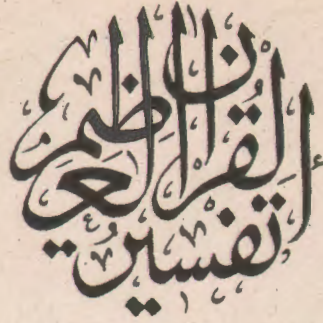 تفسير القرآن العظيم